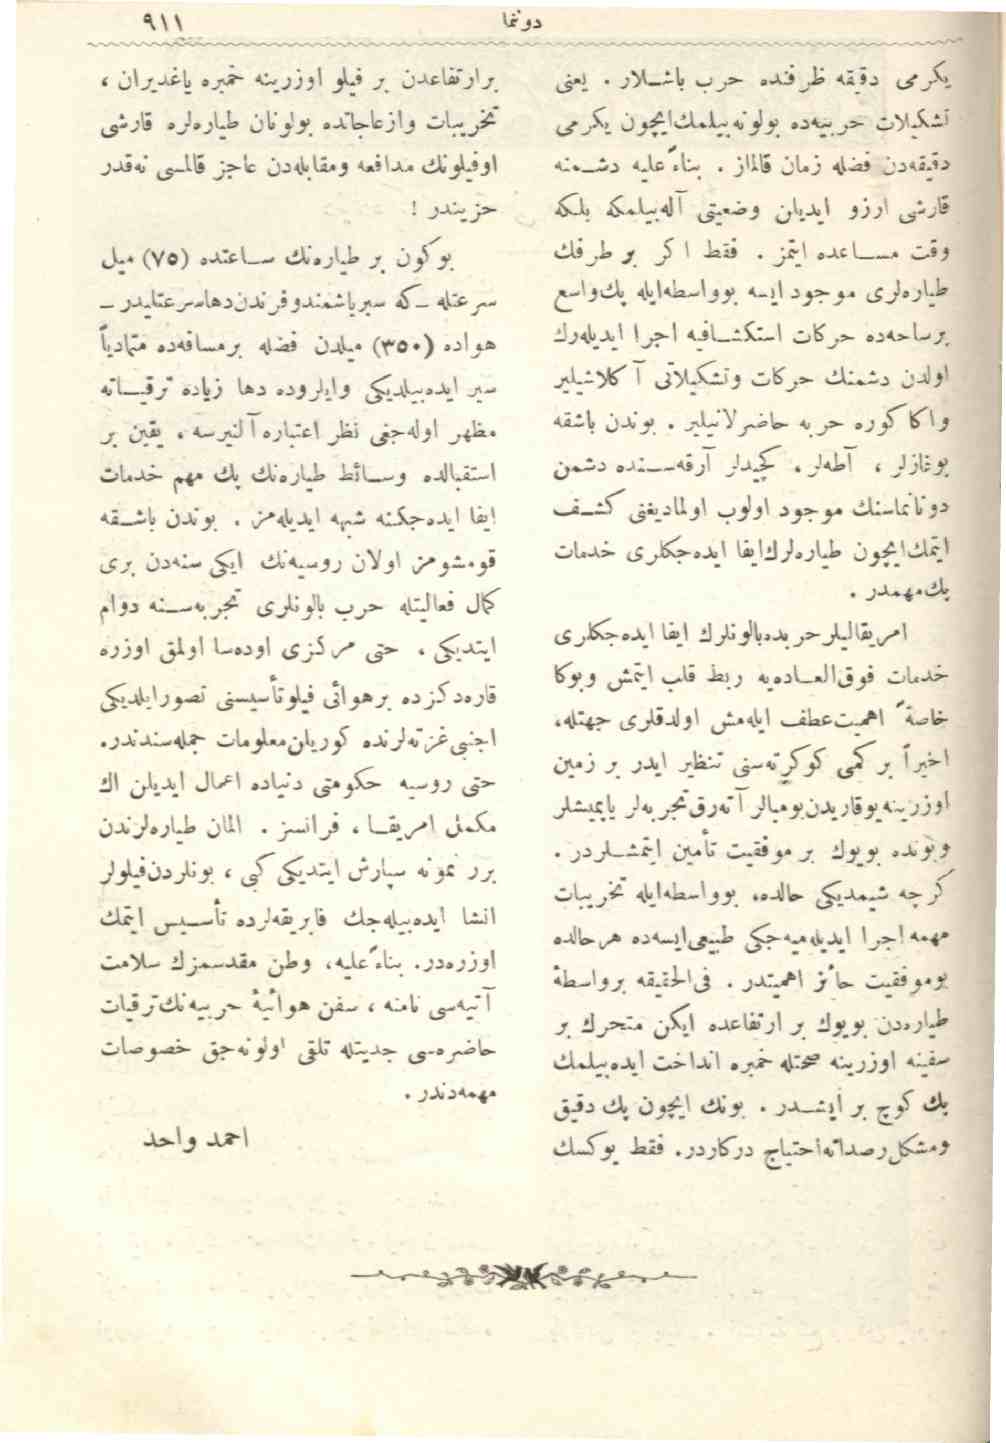 دونما
٩١١
یكرمی دقیقه ظرفنده حرب باشـلار . یعنی
تشكیلات حربیه‌ده بولونه‌بیلمك ایچون یكرمی
دقیقه‌دن فضله زمان قالماز . بناءً علیه دشـمنه
قارشی ارزو ایدیلن وضعیتی آله‌بیلمكه بلكه
وقت مسـاعده ایتمز . فقط اكر بر طرفك
طیاره‌لری موجود ایسه بوواسطه‌ایله پك واسع
برساحه‌ده حركات استكشـافیه اجرا ایدیله‌رك
اولدن دشمنك حركات وتشكیلاتی آ كلاشیلیر
واكا كوره حربه حاضرلانیلیر . بوندن باشقه
بوغازلر ، آطه‌لر ، كچیدلر آرقه‌سـنده دشمن
دونانماسنك موجود اولوب اولمادیغنی كشـف
ایتمك ایچون طیاره‌لرك ایفا ایده‌جكلری خدمات
پك مهمدر .
امریقالیلر حربده بالونلرك ایفا ایده‌جكلری
خدمات فوق العـاده‌یه ربط قلب ایتمش وبوكا
خاصةً اهمیت عطف ایله‌مش اولدقلری جهتله،
اخیراً بر كمی كوكرته‌سنی تنظیر ایدر بر زمین
اوزرینه یوقاریدن بومبالر آته‌رق تجربه‌لر یاپمیشلر
وبونده بویوك بر موفقیت تأمین ایتمشـلردر .
كرچه شیمدیكی حالده، بوواسطه‌ایله تخریبات
مهمه اجرا ایدیله‌میه‌جكی طبیعی ایسه‌ده هر حالده
بوموفقیت حائز اهمیتدر . فی الحقیقه برواسطهٔ
طیاره‌دن بویوك بر ارتفاعده ایكن متحرك بر
سفینه اوزرینه صحتله خمبره انداخت ایده‌بیلمك
پك كوچ بر ایشـدر . بونك ایچون پك دقیق
ومشكل رصداته احتیاج دركاردر. فقط یوكسك
برارتفاعدن بر فیلو اوزرینه خمبره یاغدیران ،
تخریبات وازعاجاتده بولونان طیاره‌لره قارشی
اوفیلونك مدافعه ومقابله‌دن عاجز قالمـسی نه‌قدر
حزیندر !
بوكون بر طیاره‌نك سـاعتده (٧٥) میل
سرعتله ـ كه سیرباشمندوفرندن دها سرعتلیدر ـ
هواده (٣٥٠) میلدن فضله برمسافه‌ده متمادیاً
سیر ایده‌بیلدیكی وایلروده دها زیاده ترقیـاته
مظهر اوله‌جغی نظر اعتباره آلنیرسه ، یقین بر
استقبالده وسـائط طیاره‌نك پك مهم خدمات
ایفا ایده‌جكنه شبهه ایدیله‌مز . بوندن باشـقه
قومشومز اولان روسیه‌نك ایكی سنه‌دن بری
كمال فعالیتله حرب بالونلری تجربه‌سـنه دوام
ایتدیكی ، حتی مركزی اوده‌سا اولمق اوزره
قاره‌دكزده برهوائی فیلو تأسیسنی تصورایلدیكی
اجنبی غزته‌لرنده كوریلن معلومات جمله‌سندندر.
حتی روسیه حكومتی دنیاده اعمال ایدیلن اك
مكمل امریقـا ، فرانسز . المان طیاره‌لرندن
برر نمونه سپارش ایتدیكی كبی ، بونلردن فیلولر
انشا ایده‌بیله‌جك فابریقه‌لرده تأسـیس ایتمك
اوزره‌در. بناءً علیه، وطن مقدسمزك سلامت
آتیه‌سی نامنه ، سفن هوائیهٔ حربیه‌نك ترقیات
حاضره‌سی جدیتله تلقی اولونه‌جق خصوصات
مهمه‌دندر .
احمد واحد